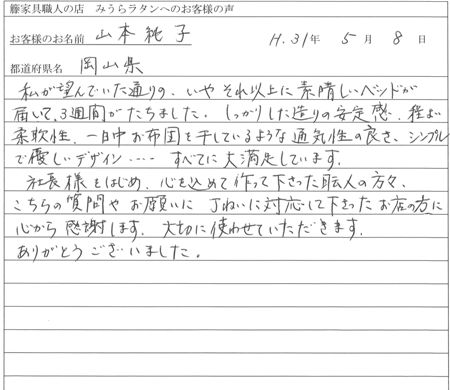 籐家具職人の店　みうらラタンへのお客様の声
お客様のお名前　山本純子　H.31年 5月 8日
都道府県名　岡山県
私が望んでいた通りの、いや それ以上に 素晴しいベッドが
届いて、3週間がたちました。しっかりした造りの安定感、程よい
柔軟性、一日中お布団を干しているような通気性の良さ、シンプル
で優しいデザイン‥‥ すべてに大満足しています。
社長様をはじめ、心を込めて作って下さった職人の方々、
こちらの質問やお願いに丁ねいに対応して下さったお店の方に
心から感謝します。大切に使わせていただきます。
ありがとうございました。